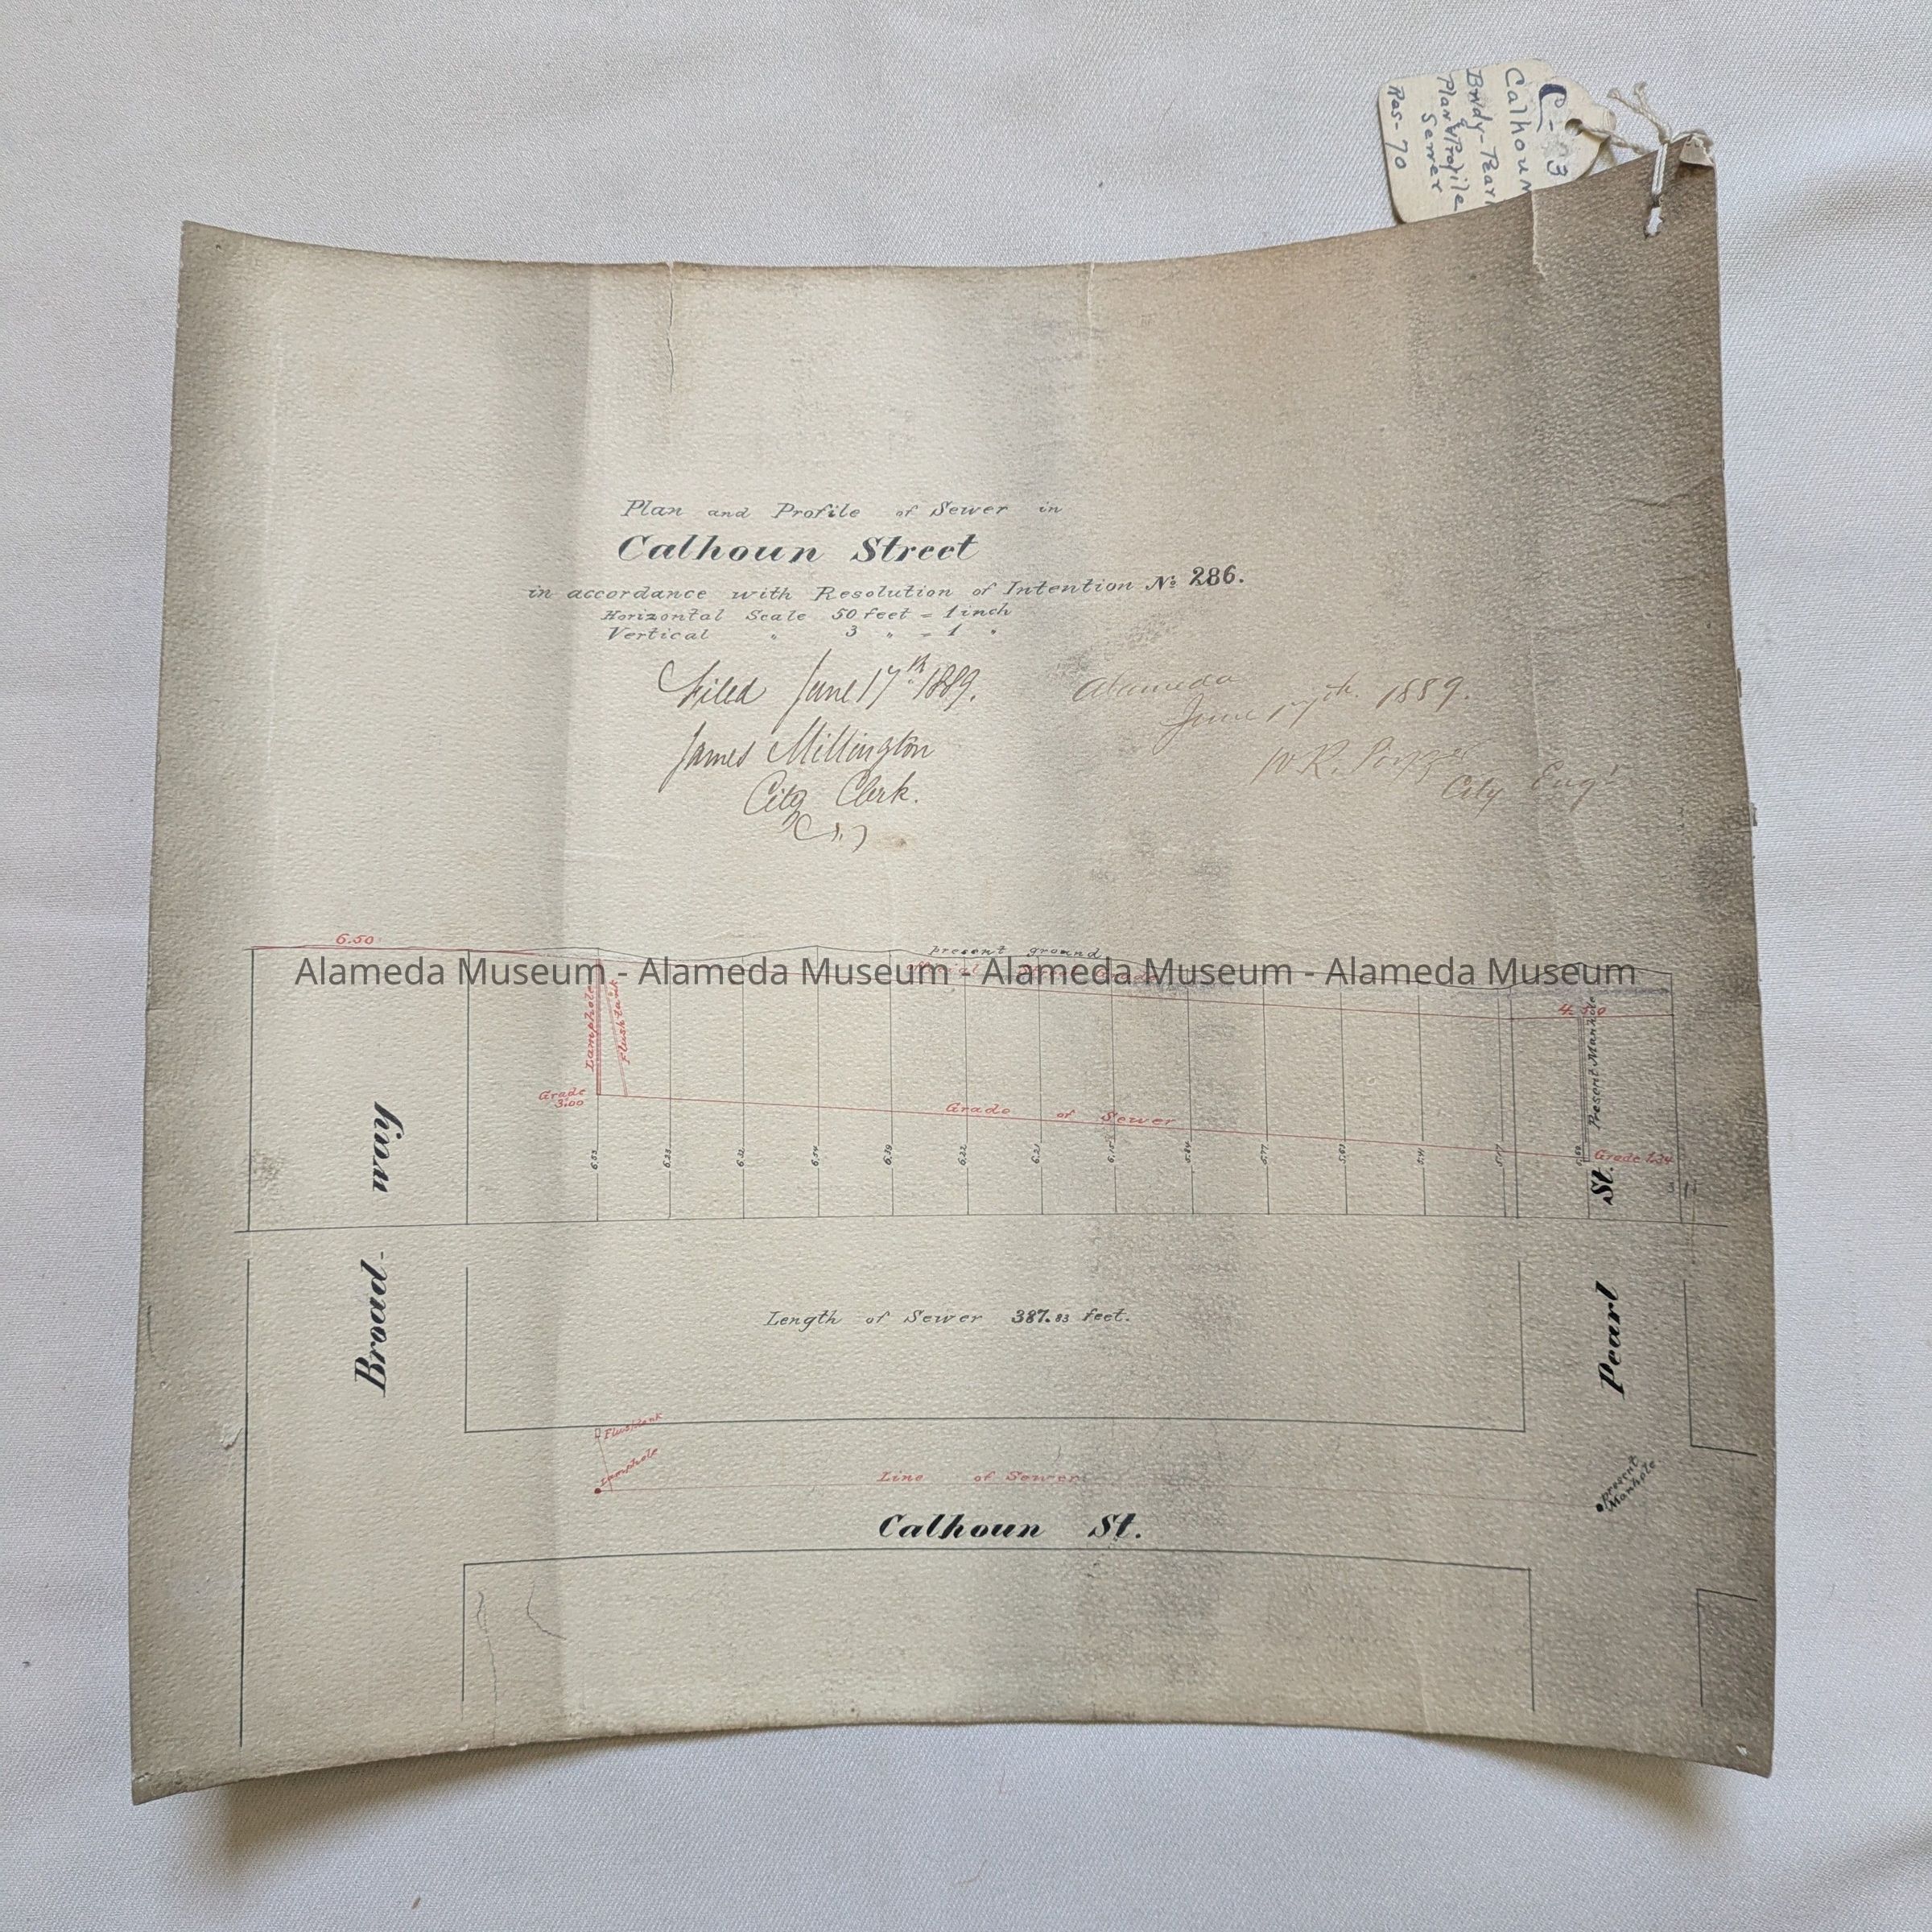 C-93
Calhoun
Bwdy-Pearl
Plan & Profile
Sewer
Ras-70
Plan and Profile of Sewer in
Calhoun Street
in accordance with Resolution of Intention No. 286.
Horizontal Scale 50 feet = 1 inch
Vertical " 3 " = 1 "
Filed June 17th 1889.
James Millington
City Clerk.
Alameda
June 17th. 1889.
W.R.
City Eng'r
6.50
present ground
Alameda Museum - Alameda Museum - Alameda Museum - Alameda Museum
4.50
Lamphole
Flushtank
Present Manhole
Grade
3.00
Grade of Sewer
Grade 1.34
6.53
6.25
6.54
6.39
6.22
6.21
6.15
5.77
Broad-way
Pearl St.
Length of Sewer 387.83 feet.
Flushtank
Lamphole
Line of Sewer
present
Manhole
Calhoun St.